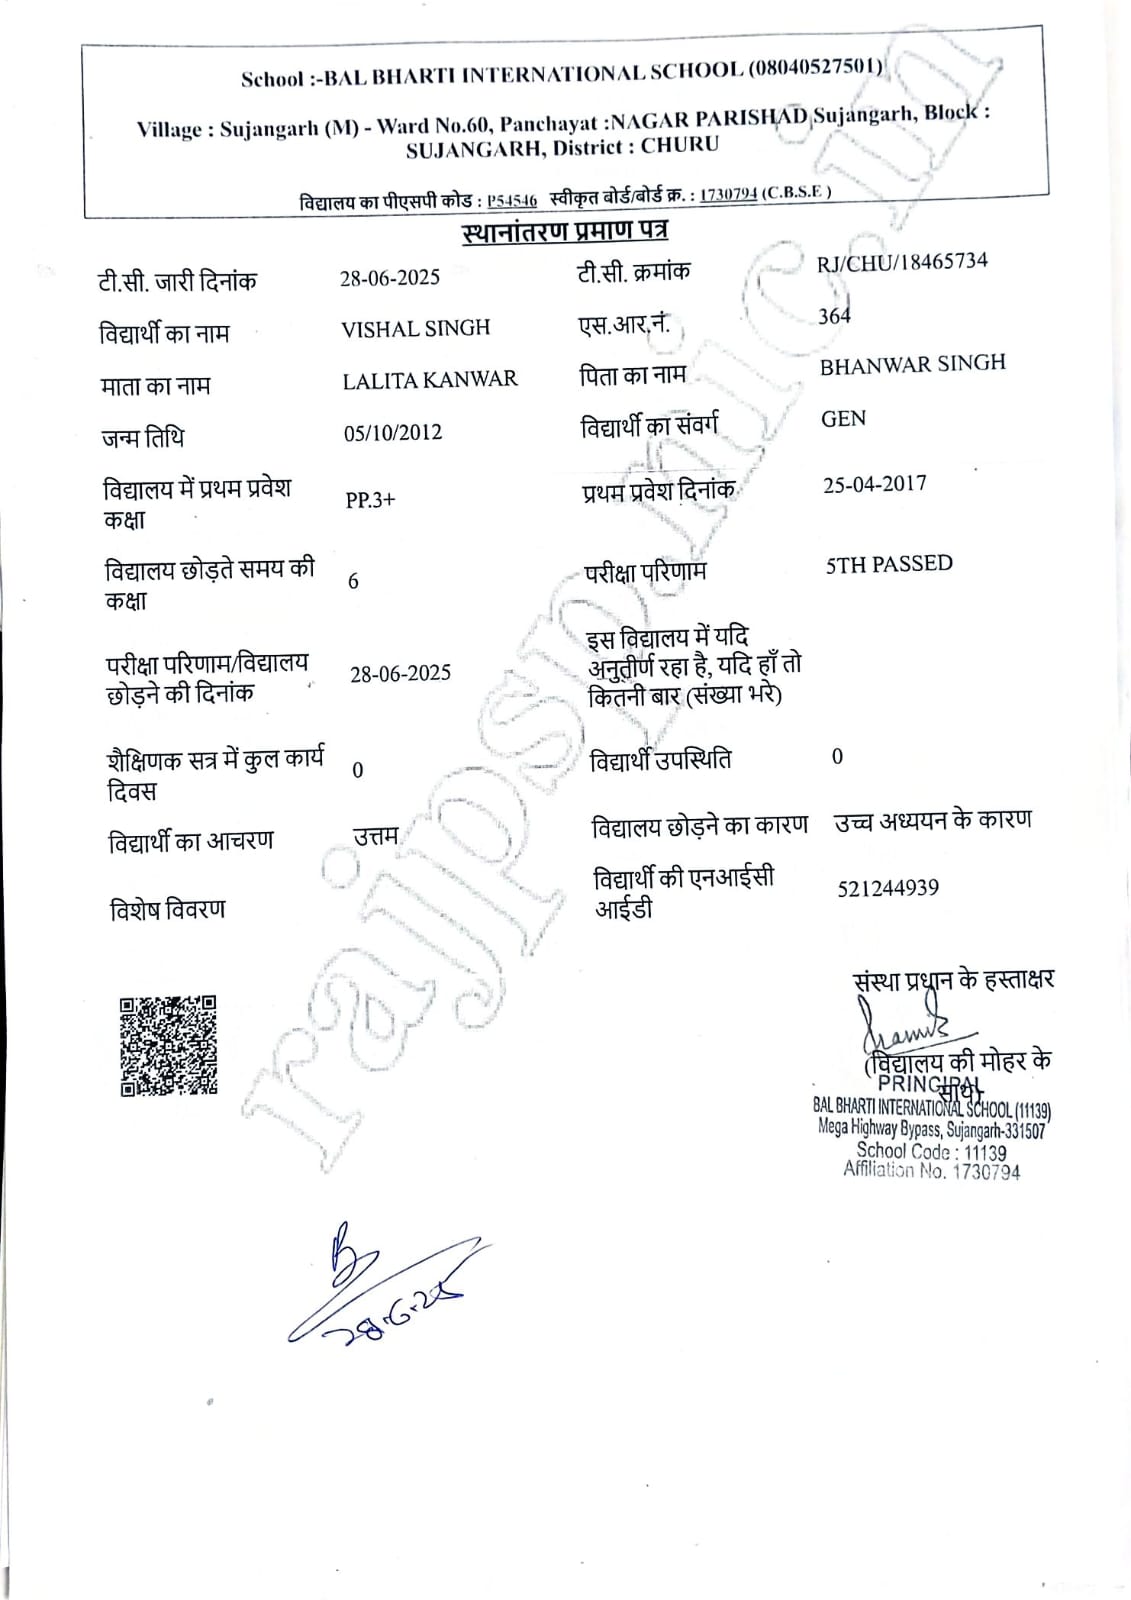 School :-BAL BHARTI INTERNATIONAL SCHOOL (08040527501)
Village : Sujangarh (M) - Ward No.60, Panchayat :NAGAR PARISHAD Sujangarh, Block :
SUJANGARH, District : CHURU
विद्यालय का पीएसपी कोड : P54546 स्वीकृत बोर्ड/बोर्ड क्र. : 1730794 (C.B.S.E )
स्थानांतरण प्रमाण पत्र
टी.सी. जारी दिनांक 28-06-2025 टी.सी. क्रमांक RJ/CHU/18465734
विद्यार्थी का नाम VISHAL SINGH एस.आर.नं. 364
माता का नाम LALITA KANWAR पिता का नाम BHANWAR SINGH
जन्म तिथि 05/10/2012 विद्यार्थी का संवर्ग GEN
विद्यालय में प्रथम प्रवेश
कक्षा PP.3+ प्रथम प्रवेश दिनांक 25-04-2017
विद्यालय छोड़ते समय की
कक्षा 6 परीक्षा परिणाम 5TH PASSED
परीक्षा परिणाम/विद्यालय
छोड़ने की दिनांक 28-06-2025
इस विद्यालय में यदि
अनुतीर्ण रहा है, यदि हाँ तो
कितनी बार (संख्या भरे)
शैक्षिणक सत्र में कुल कार्य
दिवस 0 विद्यार्थी उपस्थिति 0
विद्यार्थी का आचरण उत्तम विद्यालय छोड़ने का कारण उच्च अध्ययन के कारण
विशेष विवरण
विद्यार्थी की एनआईसी
आईडी 521244939
संस्था प्रधान के हस्ताक्षर
(विद्यालय की मोहर के
साथ)
PRINCIPAL
BAL BHARTI INTERNATIONAL SCHOOL (11139)
Mega Highway Bypass, Sujangarh-331507
School Code : 11139
Affiliation No. 1730794
28.6.25
rajpsp.nic.in